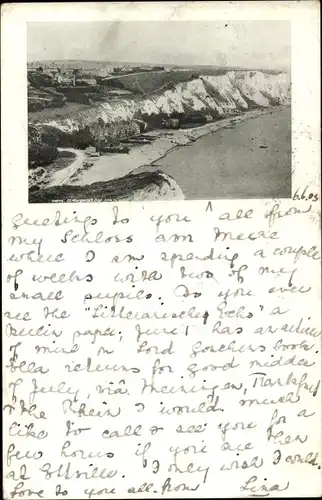 6.6.03
Greetings to you all from
my Schloss am Meere
where I am spending a couple
of weeks with two of my
small pupils. Do you ever
see the "Litterarisches Echo" a
Berlin paper; June 1 has an
of mine on Lord book.
returns for good middle
of July, via Meiningen, Frankfurt
& the Rhein & would much
like to call & see you for a
few hours if you are then
at Eltville. I only wish I could.
Love to you all. from Lina